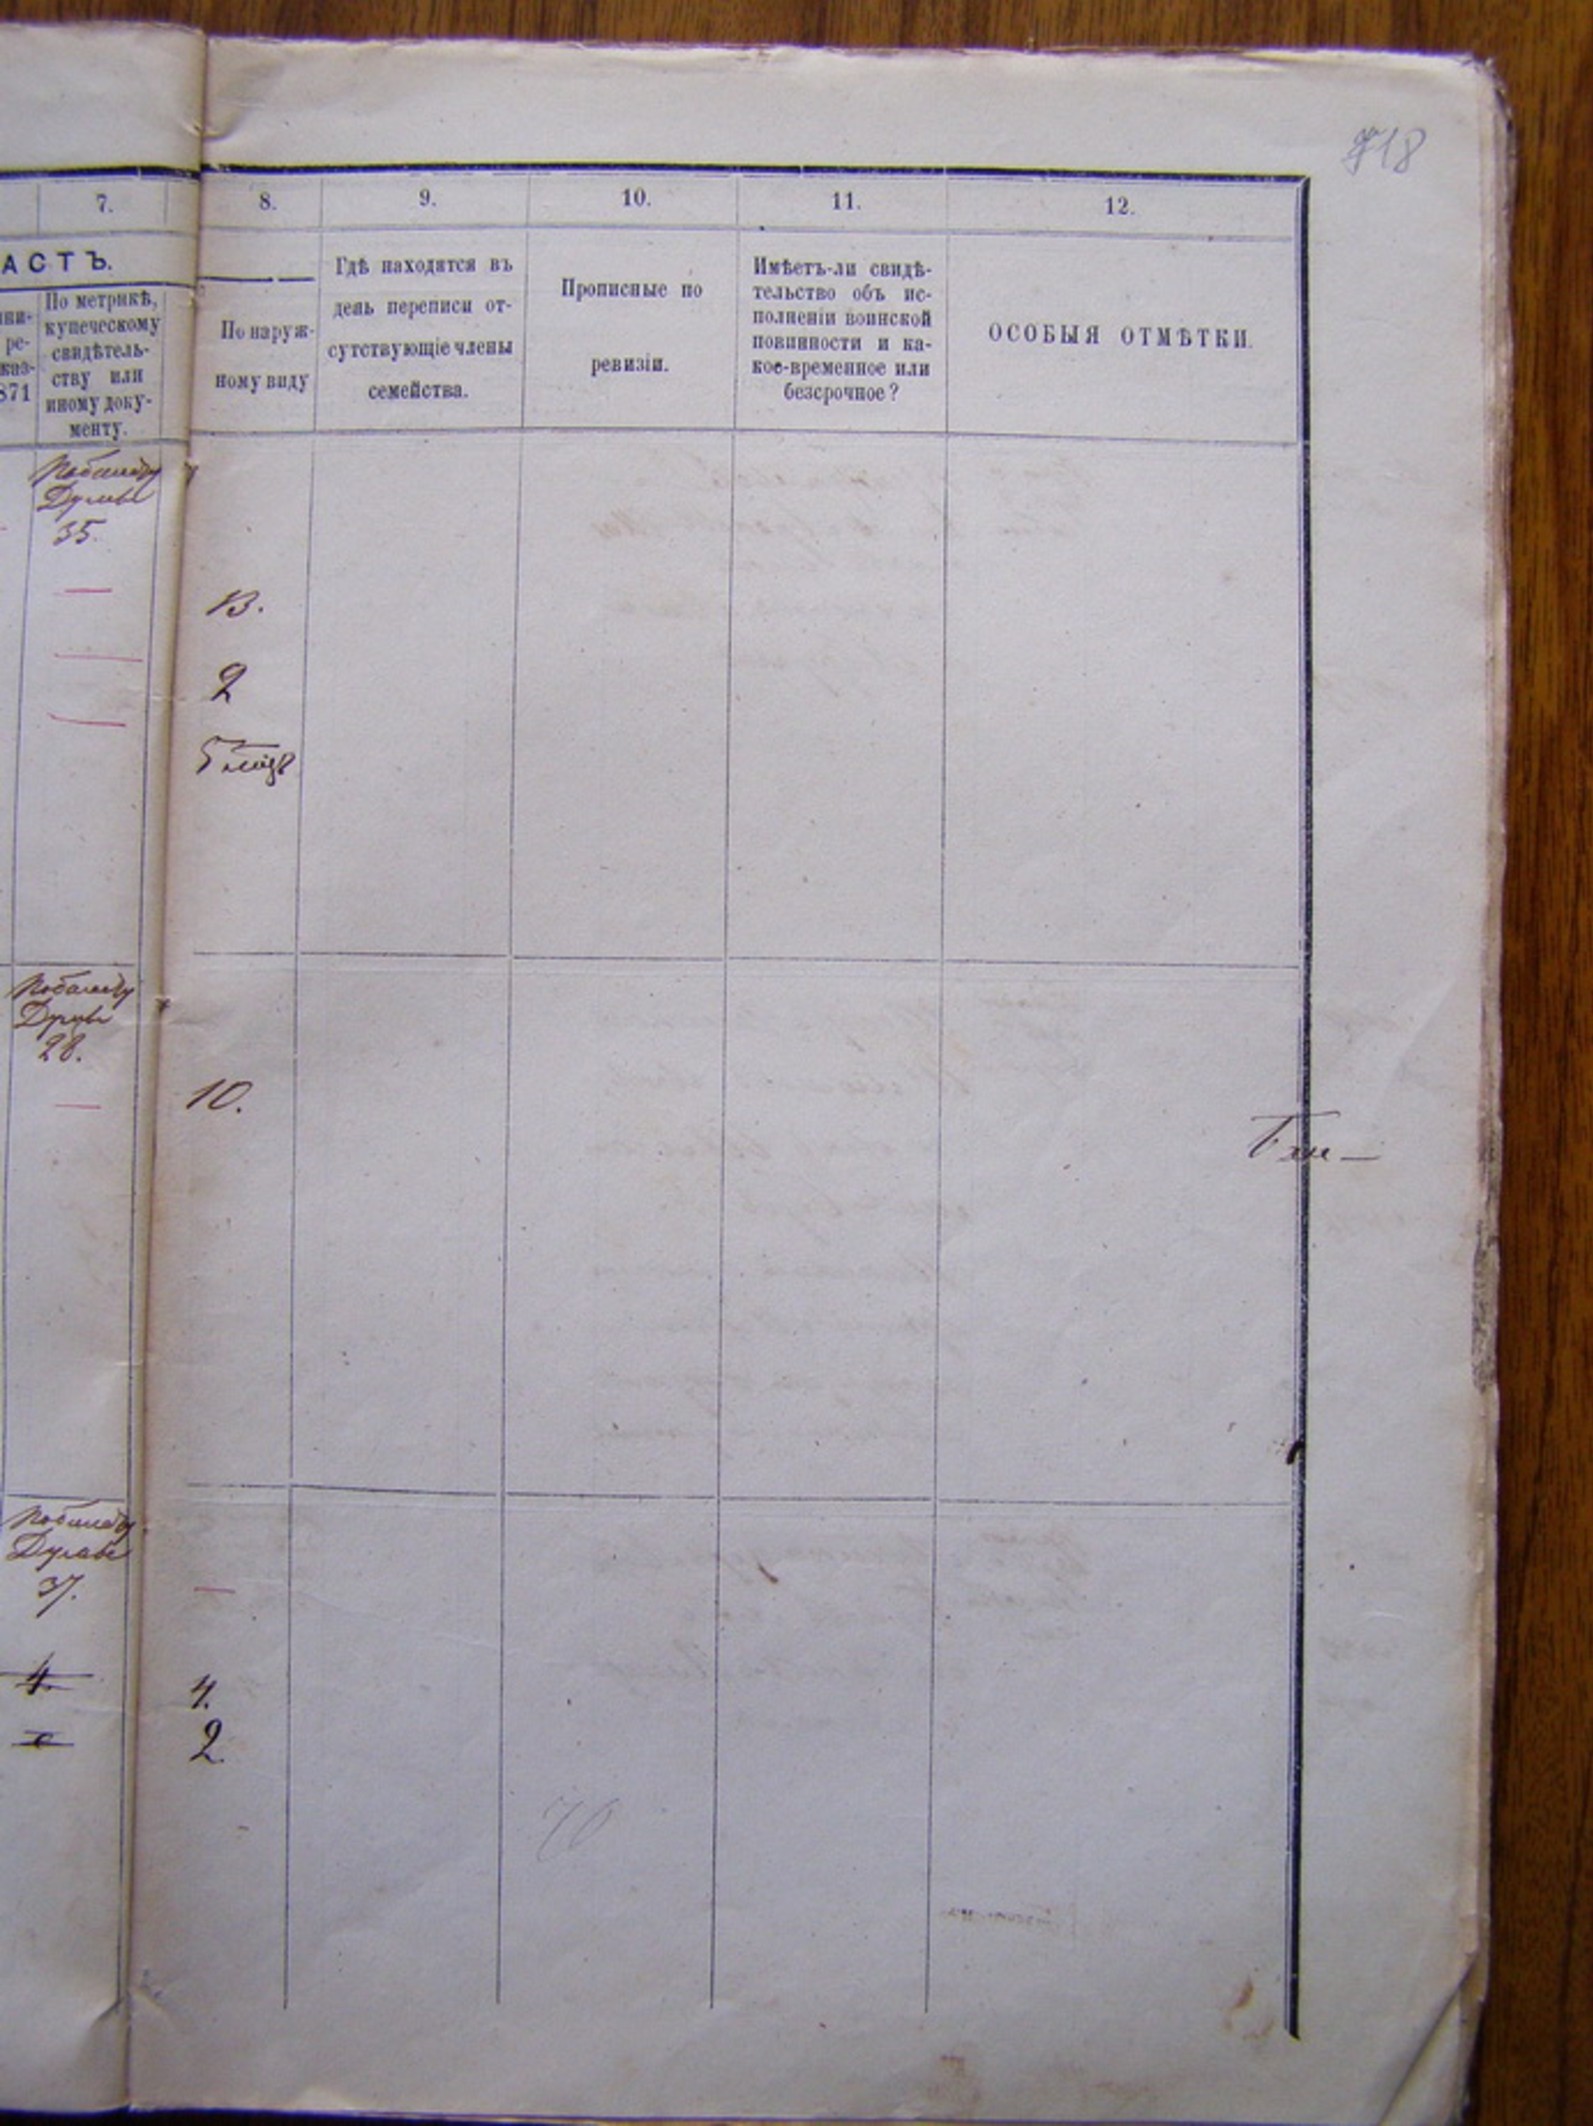 718
7.
8.
9.
10.
11.
12.
АСТЪ.
ни-
ре-
каз-
871
По метрикѣ,
купеческому
свидѣтель-
ству или
иному доку-
менту.
По наруж-
ному виду
Гдѣ находятся въ
день переписи от-
сутствующіе члены
семейства.
Прописные по
ревизіи.
Имѣетъ-ли свидѣ-
тельство объ ис-
полненіи воинской
повинности и ка-
кое-временное или
безсрочное?
ОСОБЫЯ ОТМѢТКИ.
По билету
Думы
35.
13.
2
5 мѣс
По билету
Думы
28.
10.
По билету
Думы
37.
4.
4.
2.
70